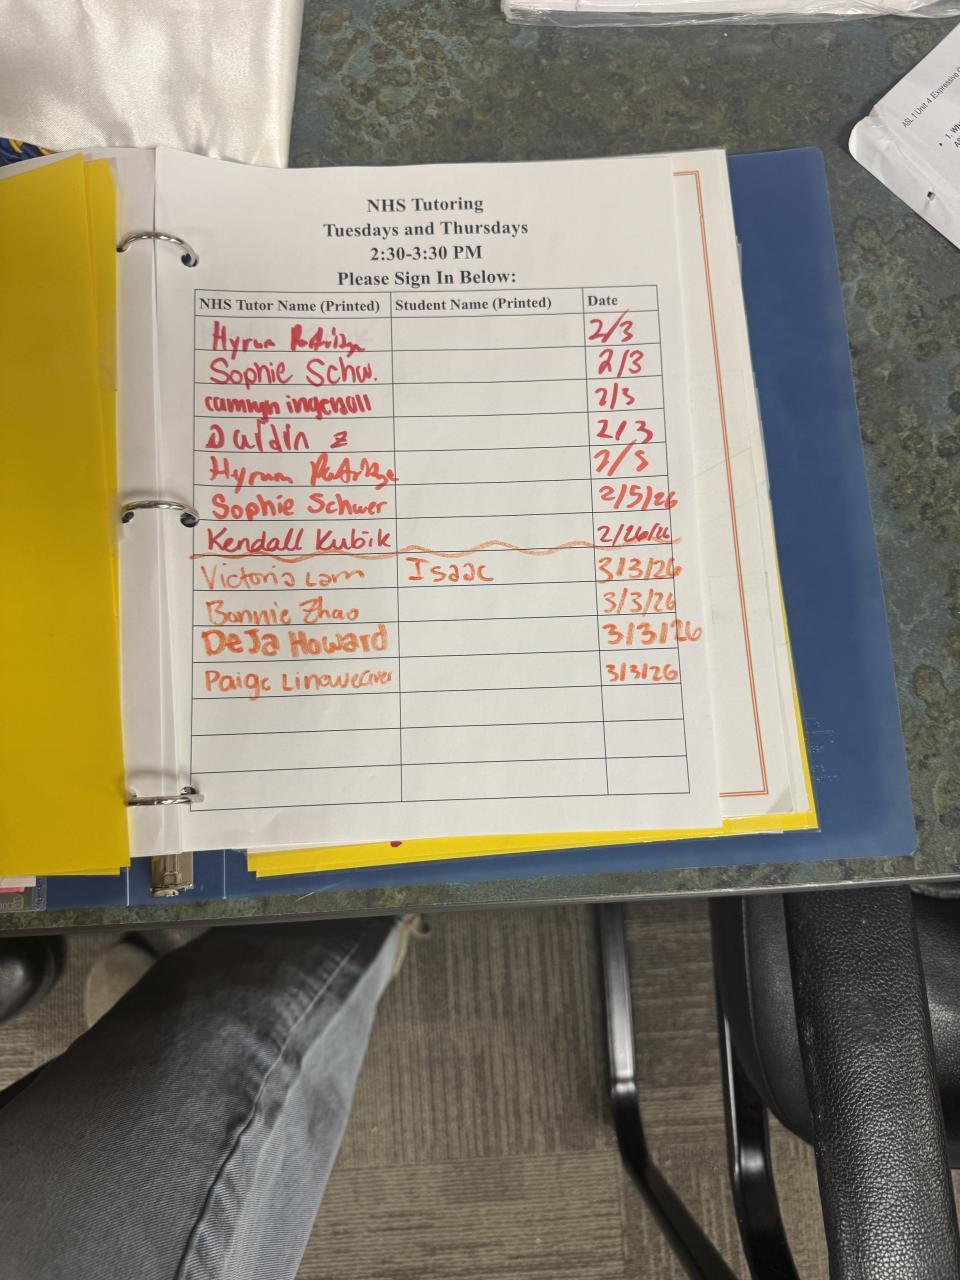 NHS Tutoring
Tuesdays and Thursdays
2:30-3:30 PM
Please Sign In Below:
NHS Tutor Name (Printed) Student Name (Printed) Date
Hyrum 2/3
Sophie Schw. 2/3
camryn ingersoll 2/3
2/3
Hyrum 2/5
Sophie Schwer 2/5/26
Kendall Kubik 2/26/26
Victoria Lam Isaac 3/3/26
Bonnie Zhao 3/3/26
DeJa Howard 3/3/26
Paige Lineweaver 3/3/26
ASL 1 Unit 4 Expressive